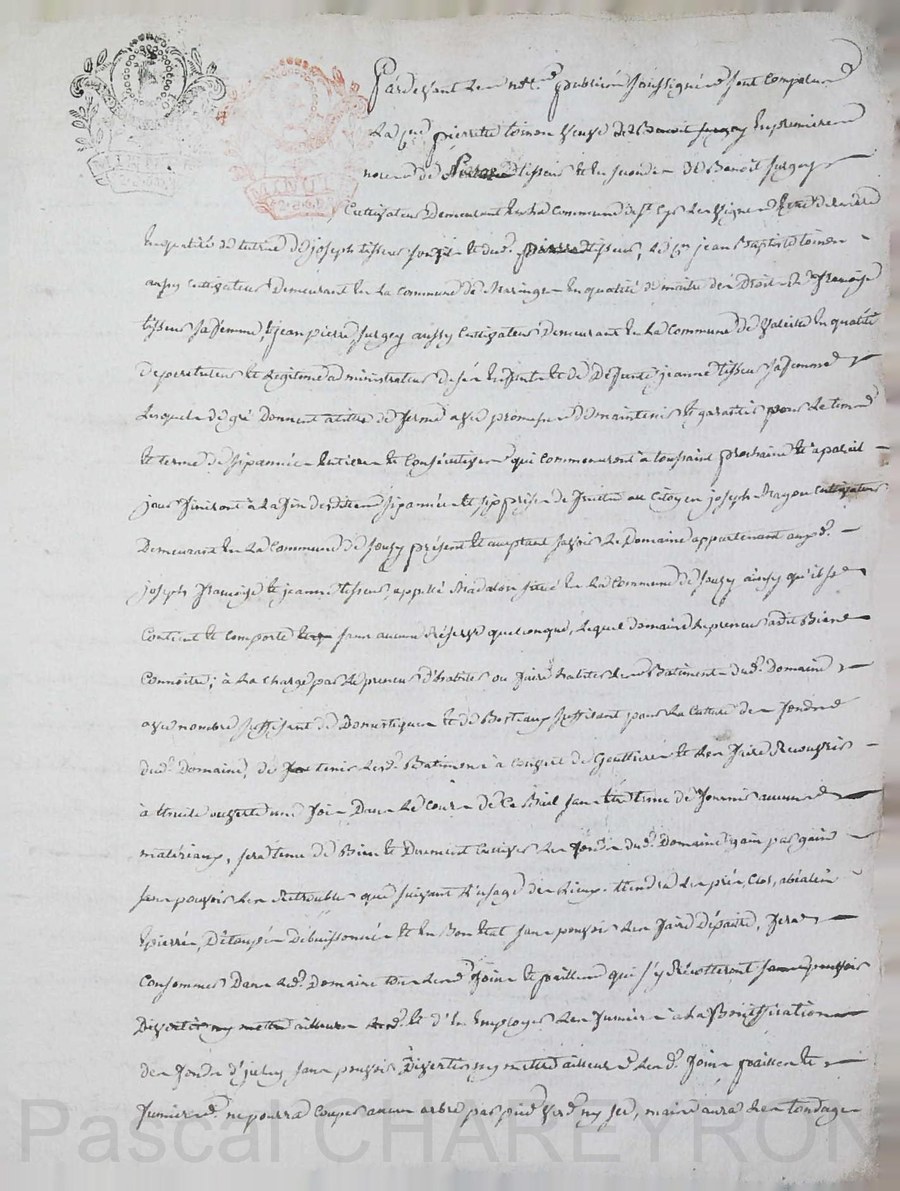 MINUTE
MINUTE
Pardevant les not.re publics soussignés sont comparus
La C.ne pierrette toinon veuve de Benoit jurgey en premiere
noces de pierre tisseur et en secondes de Benoît jurgey
Cultivateur Demeurant en la Commune de S.t Cyr les vignes
en qualité de tutrice de joseph tisseur son fils et dud. pierre tisseur, le C.n jean Baptiste toinon
aussy cultivateur demeurant en la Commune de Maringe en qualité de maitre des Droits de françoise
tisseur sa femme, & jean pierre jurgey aussy Cultivateur demeurant en la Commune de Valeille en qualité
de pere tuteur et Legitime administrateur de ses enfants et de Defunte jeanne tisseur sa femme
Lesquels de gré donnent à titre de ferme avec promesse de maintenir et garantir pour le tems
et terme de six années entieres et Consécutives qui commenceront à toussaint prochaine et à pareil
jour finiront à la fin desdites six années et six prises de fruits au Citoyen joseph Cultivateur
Demeurant en la Commune de souzy présent et acceptant savoir Le Domaine appartenant auxd.
joseph françoise et jeanne tisseur, appellé situé en la Commune de souzy ainsy qu'il se
Contient et Comporte sans aucune réserve quelconque, lequel domaine le preneur a dit Bien
Connoitre; à la charge par le preneur d'habiter ou faire habiter les Batiments dud. Domaine
avec nombre suffisant de Domestiques et de Bestiaux suffisant pour la Culture des fonds
dud. Domaine, de tenir lesd. Batiments à Couvert de Gouttieres et les faire Recouvrir
à thuile ouverte une fois dans le cours de ce Bail sans être tenu de fournir aucuns
matériaux, sera tenu de Bien et Duement Cultiver les fonds dud. Domaine gain par gain
sans pouvoir les Retroubler que suivant l'usage des Lieux. tiendra les prés, Clos,
épierrés, Détaupés Débuissonnés et en Bon état sans pouvoir les faire Dépaitre, fera
Consommer Dans led. Domaine tous lesd. foins et pailles qui s'y Récolteront sans pouvoir
Divertir ny mettre ailleurs et d'en Employer les fumiers à la Bonification
des fonds d'iceluy sans pouvoir Divertir ny mettre ailleurs lesd. foins pailles et
fumiers. ne pourra couper aucun arbre par pied verd ny sec, mais aura les tondages
Pascal CHAREYRON